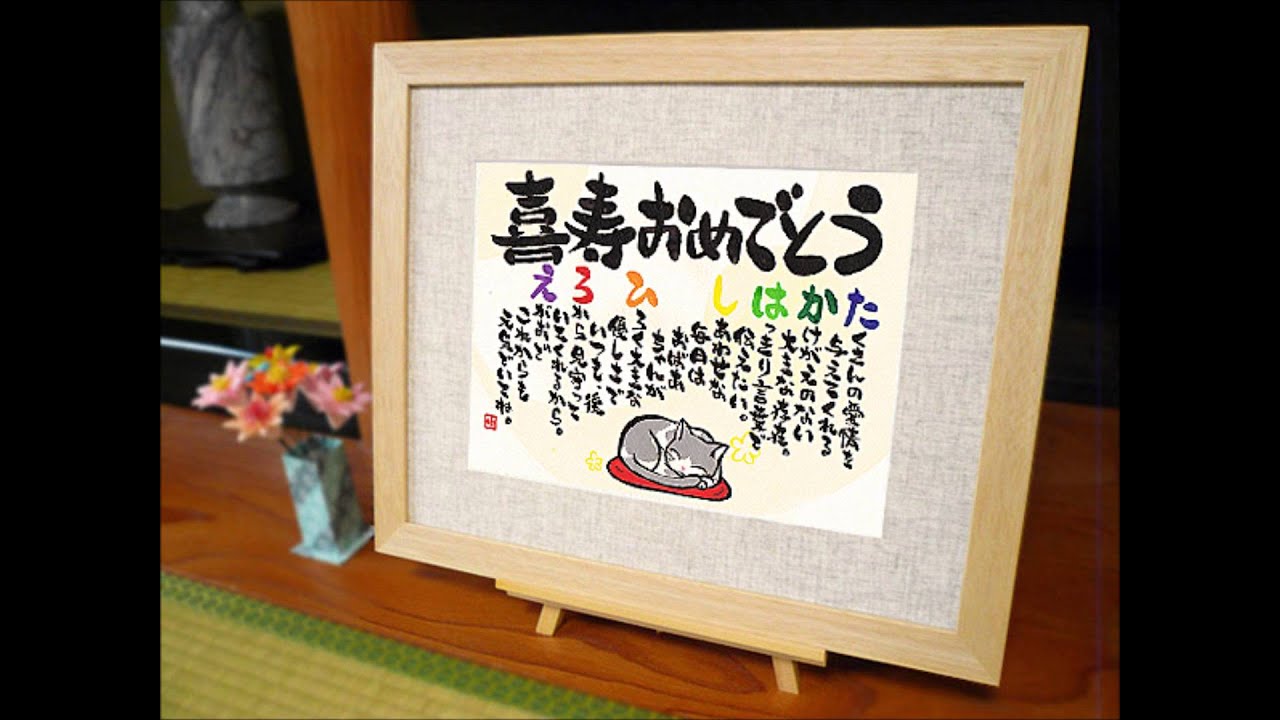 喜寿おめでとう
たくさんの愛情を
与えてくれる
かけがえのない
大きな存在。
はっきり言葉で
伝えたい。
しあわせな
毎日は
おばあ
ちゃんが
ひろく大きな
優しさで
いつも後
ろから見守って
いてくれるから。
えがおで
これからも
元気でいてね。